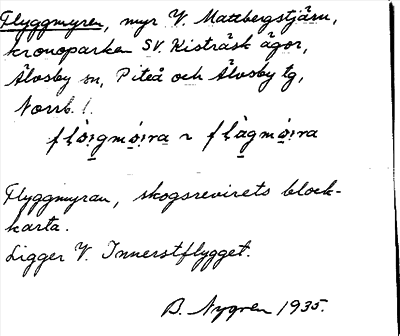 Flyggmyren, myr V. Mattbergstjärn,
kronoparken SV. Kisträsk ägor,
Älvsby sn, Piteå och Älvsby tg,
Norrb. l.
Flyggmyran, skogsrevirets block-
karta.
Ligger V. Innerstflygget.
B. Nygren 1935.